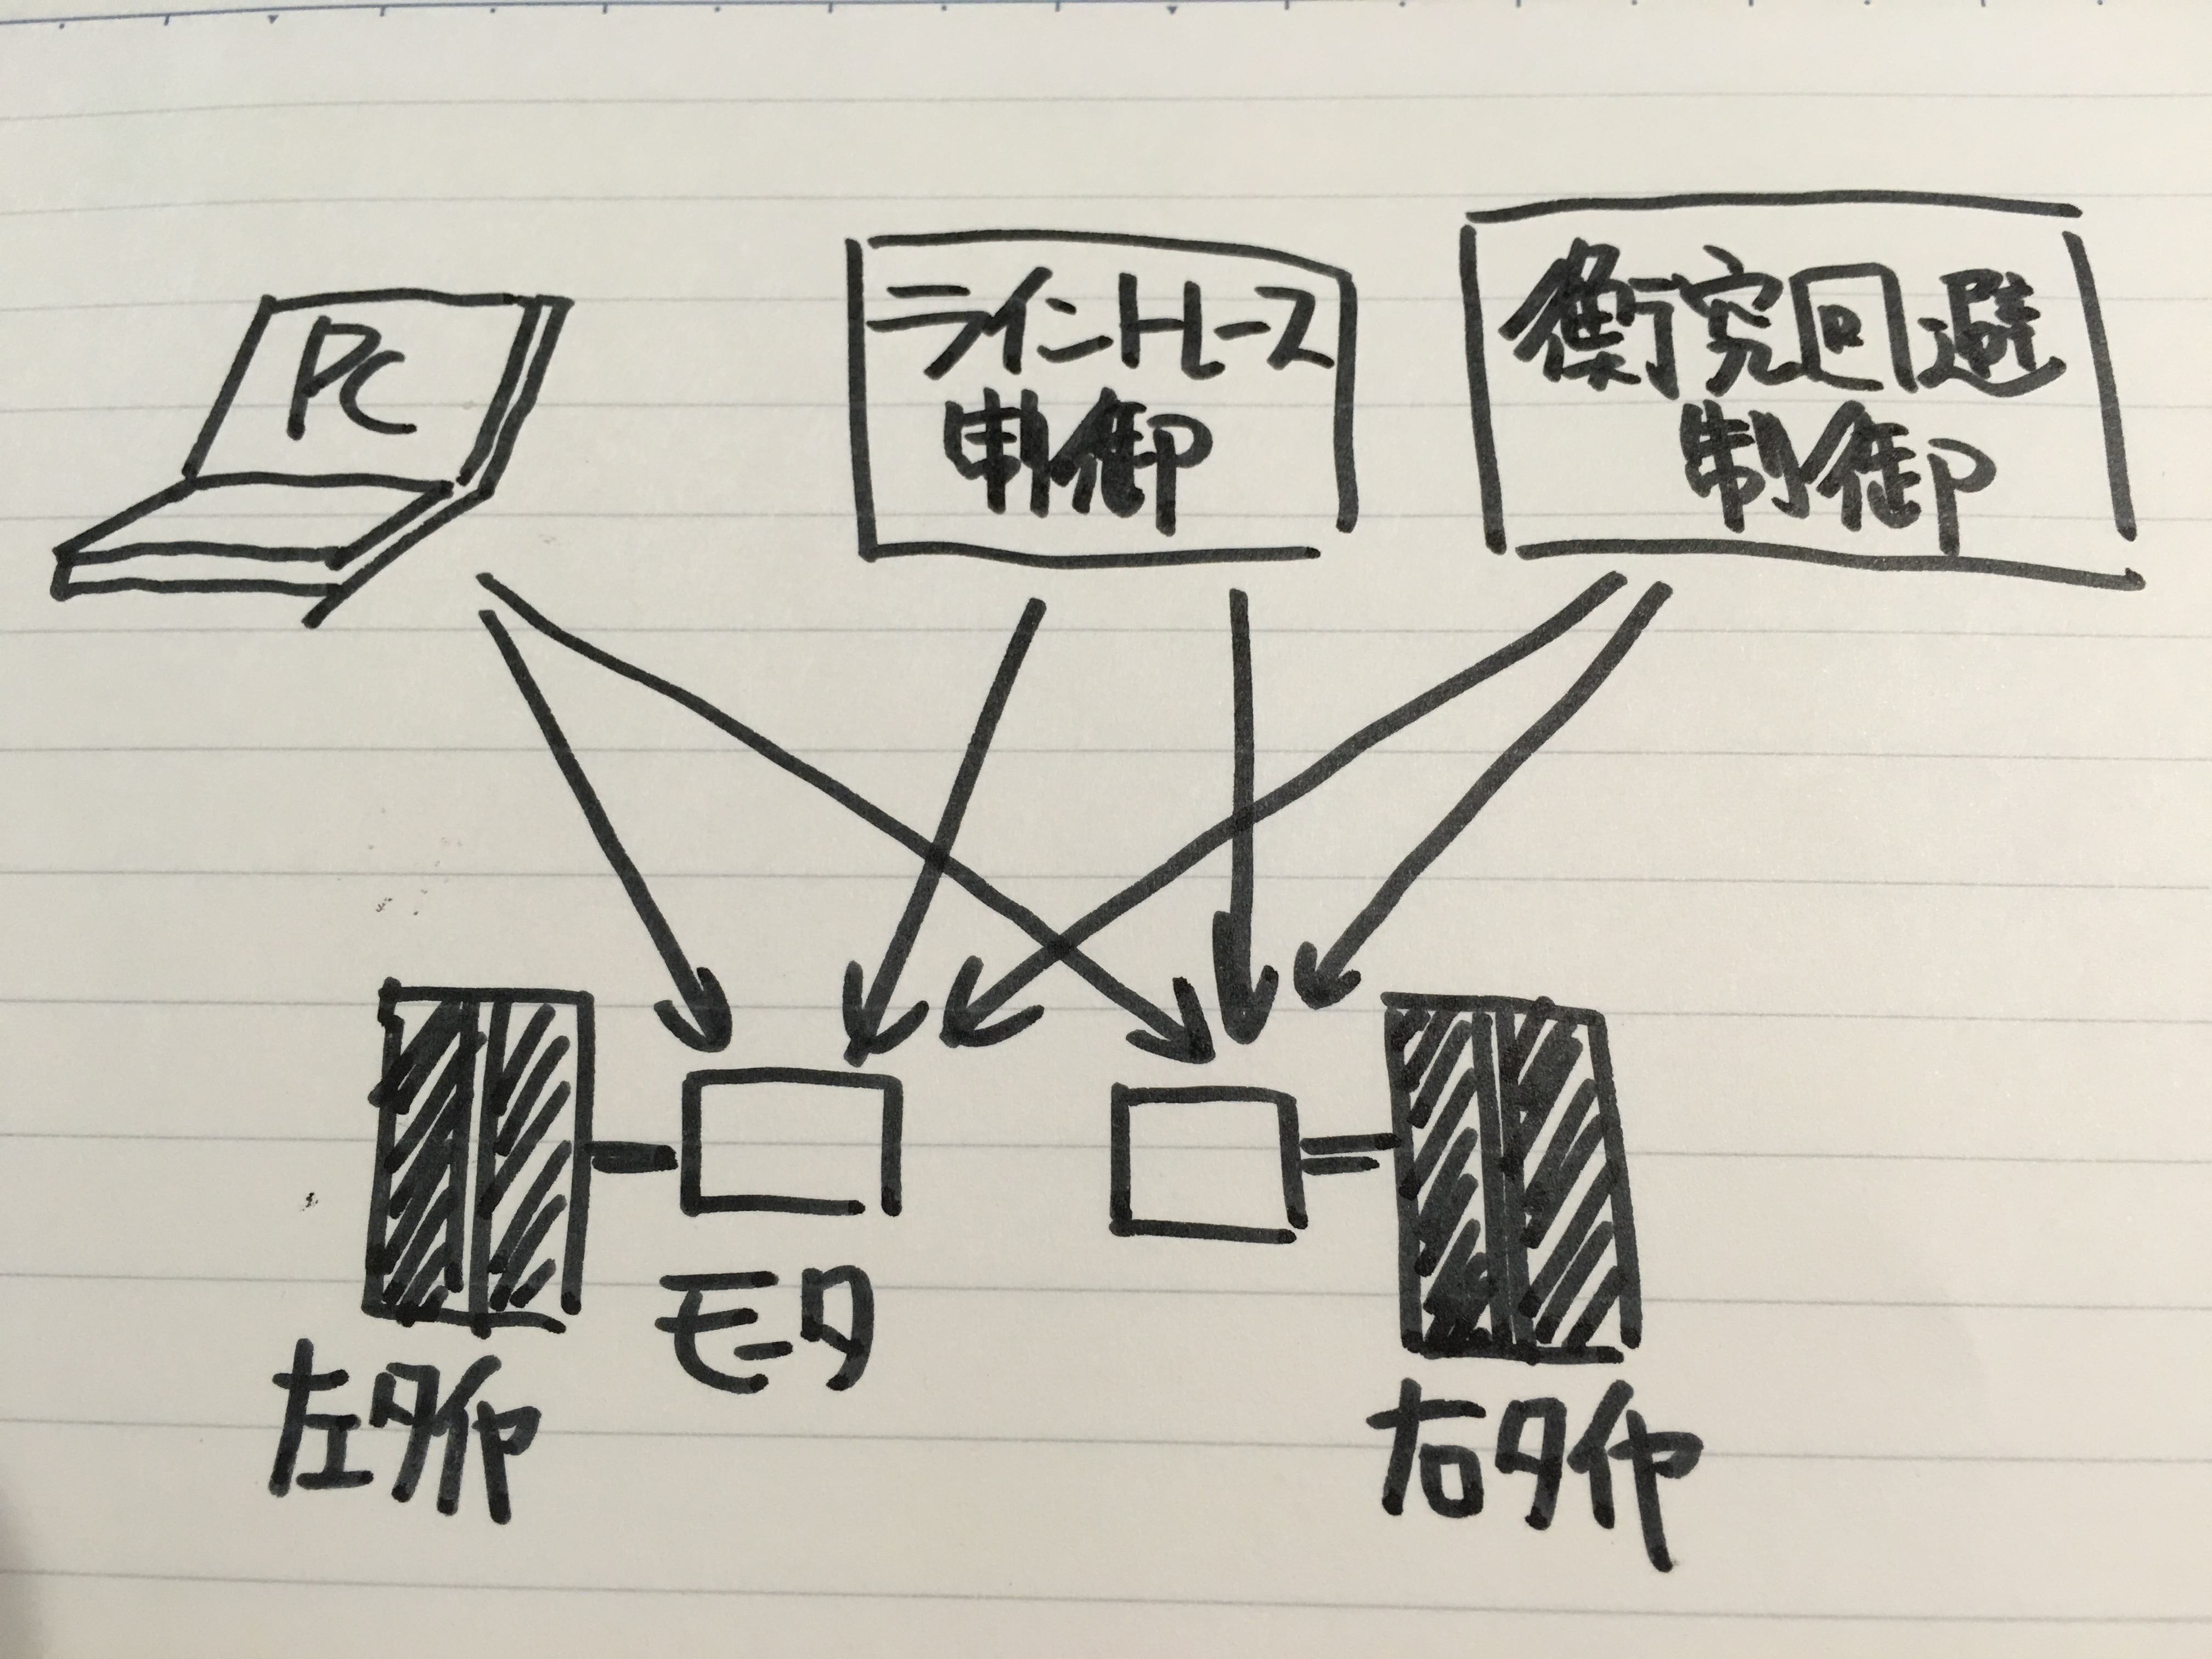 PC
ライントレース
制御
衝突回避
制御
モータ
左タイヤ
右タイヤ